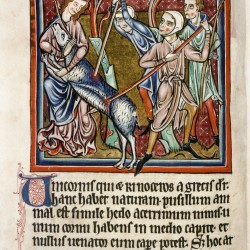 Unicornis qui & rinoceros a grecis dr̄
hanc habet naturam. pusillum ani
mal est simile hedo acerrimum nimis. u
num cornu habens in medio capite. et
nullus uenator eum capere potest. S; hoc at